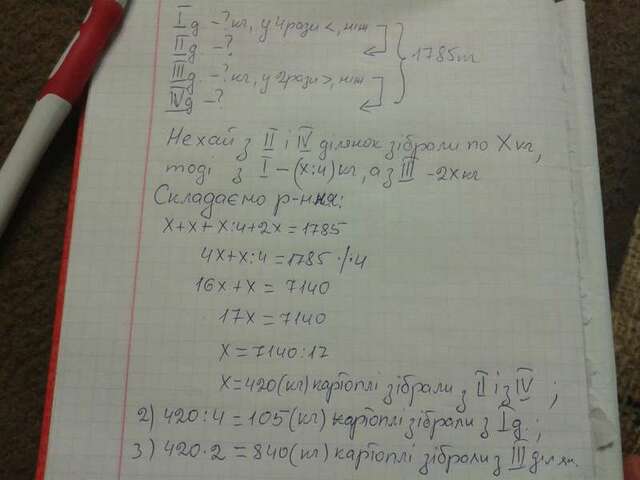 I д -? кг, у 4 рази <, ніж
II д. -?
III д. -? кг, у 2 рази >, ніж
IV д -?
1785 кг
Нехай з II і IV ділянок зібрали по X кг,
тоді з I - (x:4) кг, а з III - 2x кг
Складаємо р-ння:
x+x+x:4+2x=1785
4x+x:4=1785 ·/·4
16x+x = 7140
17x=7140
x=7140:17
x=420(кг) картоплі зібрали з II і з IV ;
2) 420:4=105(кг) картоплі зібрали з I д.;
3) 420·2=840(кг) картоплі зібрали з III ділян.